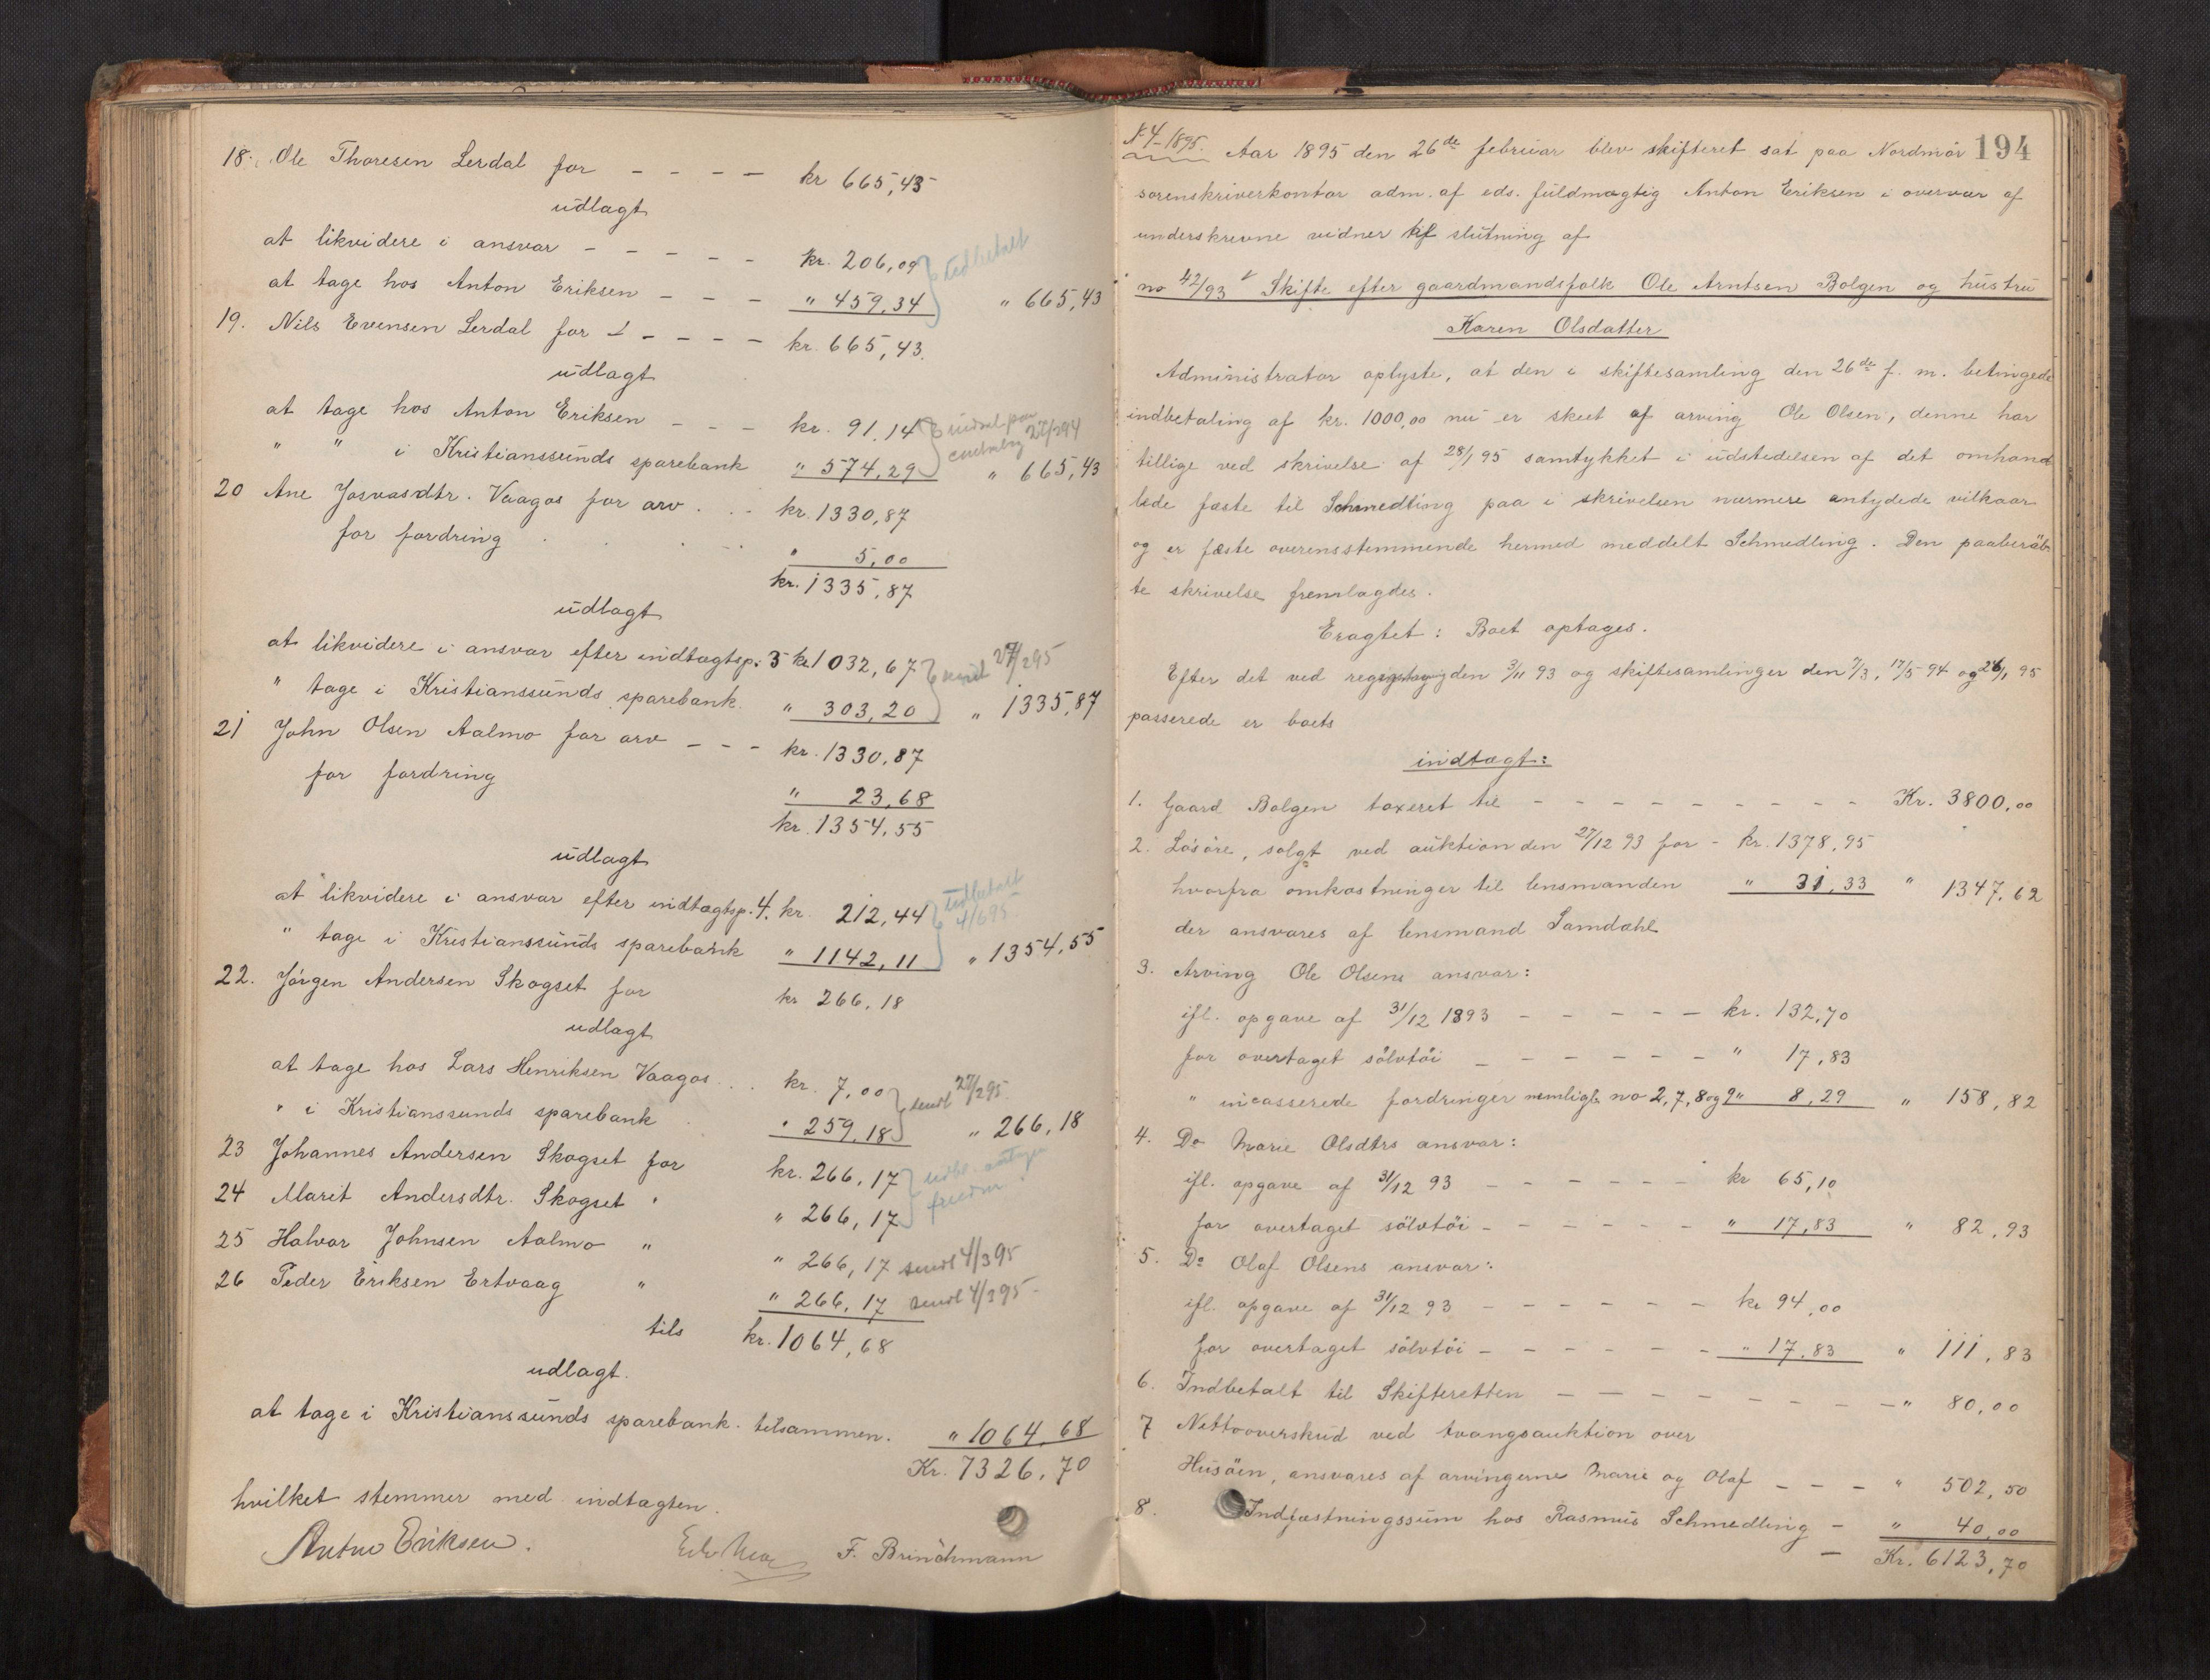 18. Ole Thoresen Lerdal for – – – – kr 665,43
udlagt
at likvidere i ansvar – – – – – kr. 206,09 udbetalt
at tage hos Anton Eriksen – – – " 459,34 " 665,43
19. Nils Evensen Lerdal for – – – – – kr. 665,43.
udlagt
at tage hos Anton Eriksen – – – kr. 91,14
" " i Kristianssunds sparebank " 574,29 " 665,43
20 Ane Josvasdtr. Vaagos for arv . . . kr. 1330,87
for fordring . . . . " 5,00
kr. 1335,87
udlagt
at likvidere i ansvar efter indtægtsp. 3 kr 1032,67 sendt 27/2 95
" tage i Kristianssunds sparebank " 303,20 " 1335,87
21 John Olsen Aalmo for arv – – – kr. 1330,87
for fordring " 23,68
kr. 1354,55
udlagt
at likvidere i ansvar efter indtægtsp. 4. kr. 212,44 udbetalt 4/6 95
" tage i Kristianssunds sparebank " 1142,11 " 1354,55
22. Jörgen Andersen Skogset for kr 266,18
udlagt
at tage hos Lars Henriksen Vaagos . . kr. 7,00 sendt 27/2 95.
" i Kristianssunds sparebank . " 259,18 " 266,18
23 Johannes Andersen Skogset for kr. 266,17
24 Marit Andersdtr. Skogset " " 266,17
25 Halvor Johnsen Aalmo " " 266,17 sendt 4/3 95
26 Peder Eriksen Ertvaag " " 266,17 sendt 4/3 95 –
tils kr. 1064,68
udlagt.
at tage i Kristianssunds sparebank tilsammen. " 1064,68
Kr. 7326,70
hvilket stemmer med indtægten.
Anton Eriksen. F. Brinchmann
№ 4–1895. Aar 1895 den 26de februar blev skifteret sat paa Nordmör 194
sorenskriverkontor adm. af eds. fuldmægtig Anton Eriksen i overvær af
underskrevne vidner til slutning af
no 42/93 Skifte efter gaardmandsfolk Ole Arntsen Bolgen og hustru
Karen Olsdatter
Administrator oplyste, at den i skiftesamling den 26de f. m. betingede
indbetaling af kr. 1000,00 nu er skeet af arving Ole Olsen, denne har
tillige ved skrivelse af 28/1 95 samtykket i udstedelsen af det omhand
lede fæste til Schmedling paa i skrivelsen nærmere antydede vilkaar
og er fæste overensstemmende hermed meddelt Schmedling. Den paaberåb
te skrivelse fremlagdes.
Eragtet: Boet optages.
Efter det ved den 3/11 93 og skiftesamlinger den 7/3, 17/5 94 og 26/1 95
passerede er boets
indtægt:
1. Gaard Bolgen taxeret til – – – – – – – – – Kr. 3800,00
2. Lösöre, solgt ved auktion den 27/12 93 for – kr. 1378,95
hvorfra omkostninger til lensmanden " 31,33 " 1347,62
der ansvares af lensmand Samdahl
3. Arving Ole Olsens ansvar:
ifl. opgave af 31/12 1893 – – – – – kr. 132,70
for overtaget sölvtöi – – – – – – " 17,83
" incasserede fordringer nemlig no 2, 7, 8 og 9 " 8,29 " 158,82
4. Do Marie Olsdtrs ansvar:
ifl. opgave af 31/12 93 – – – – – – kr 65,10
for overtaget sölvtöi – – – – – – " 17,83 " 82,93
5. Do Olaf Olsens ansvar:
ifl. opgave af 31/12 93 – – – – – – kr 94,00
for overtaget sölvtöi – – – – – – " 17,83 " 111,83
6. Indbetalt til Skifteretten – – – – – – – – " 80,00
7 Nettooverskud ved tvangsauktion over
Husöen, ansvares af arvingerne Marie og Olaf – – – " 502,50
8. Indfæstningssum hos Rasmus Schmedling – " 40,00
– Kr. 6123,70